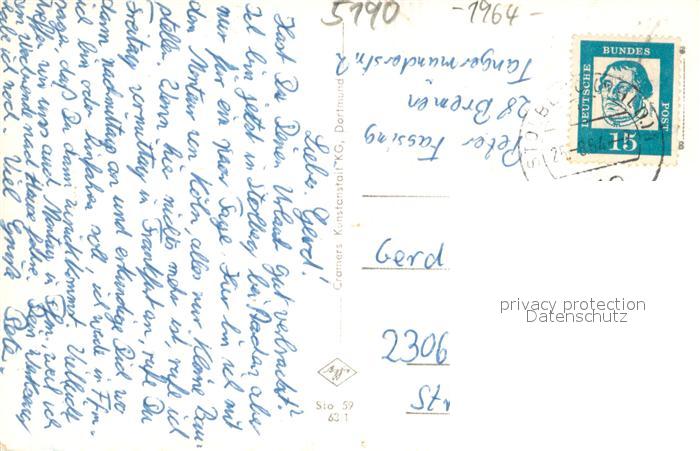 5190 -1964-
Lieber Gerd!
Hast Du Deinen Urlaub gut verbracht?
Ich bin jetzt in Stolberg bei Aachen, aber
nur für ein paar Tage. Hier bin ich mit
den Monteur von Köln, alles nur kleine Bau-
stellen. Wenn hier nichts mehr ist, rufe ich
Freitag vormittag in Frankfurt an, rufe Du
dann nachmittag an und erkundige Dich wo
ich bin oder hinfahren soll, ich würde in Ffm.
sagen, daß Du dann zurückkommst. Vielleicht
treffen wir uns auch Montag in Ffm, weil ich
am Wochenende nach Hause fahre. Dein Werkzeug
habe ich noch. Viel Grüße
Peter
Cramers Kunstanstalt KG, Dortmund
Sto 59
63 1
Peter Fassing
28 Bremen
Tangermünderstr. 2
DEUTSCHE
BUNDES
POST
15
Gerd
2306
Str
privacy protection
Datenschutz